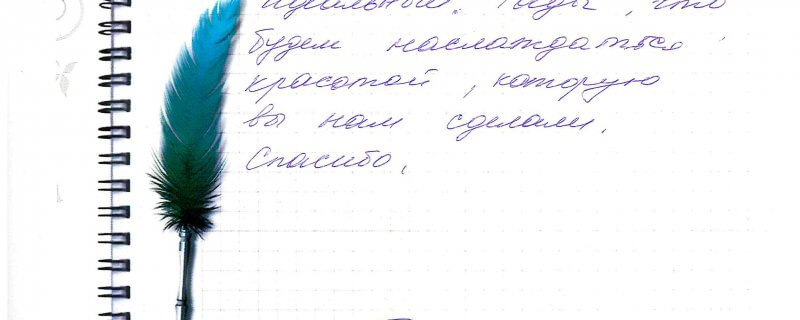 идеальный. Рады, что
будем наслаждаться
красотой, которую
вы нам сделали.
Спасибо.